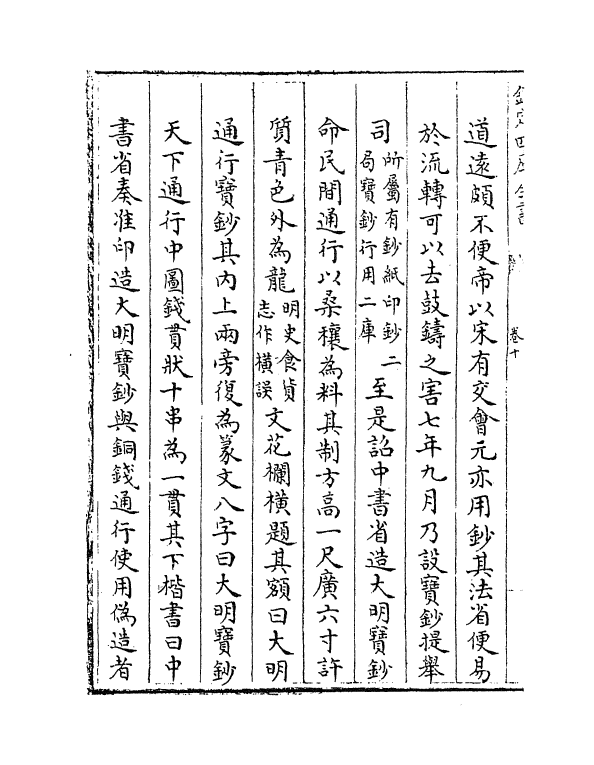 欽定四庫全書
卷十
道遠頗不便帝以宋有交會元亦用鈔其法省便易
於流轉可以去鼓鑄之害七年九月乃設寶鈔提舉
司所屬有鈔紙印鈔二局寶鈔行用二庫至是詔中書省造大明寶鈔
命民間通行以桑穰為料其制方高一尺廣六寸許
質青色外為龍明史食貨志作橫誤文花欄橫題其額曰大明
通行寶鈔其內上兩旁復為篆文八字曰大明寶鈔
天下通行中圖錢貫狀十串為一貫其下楷書曰中
書省奏准印造大明寶鈔與銅錢通行使用偽造者